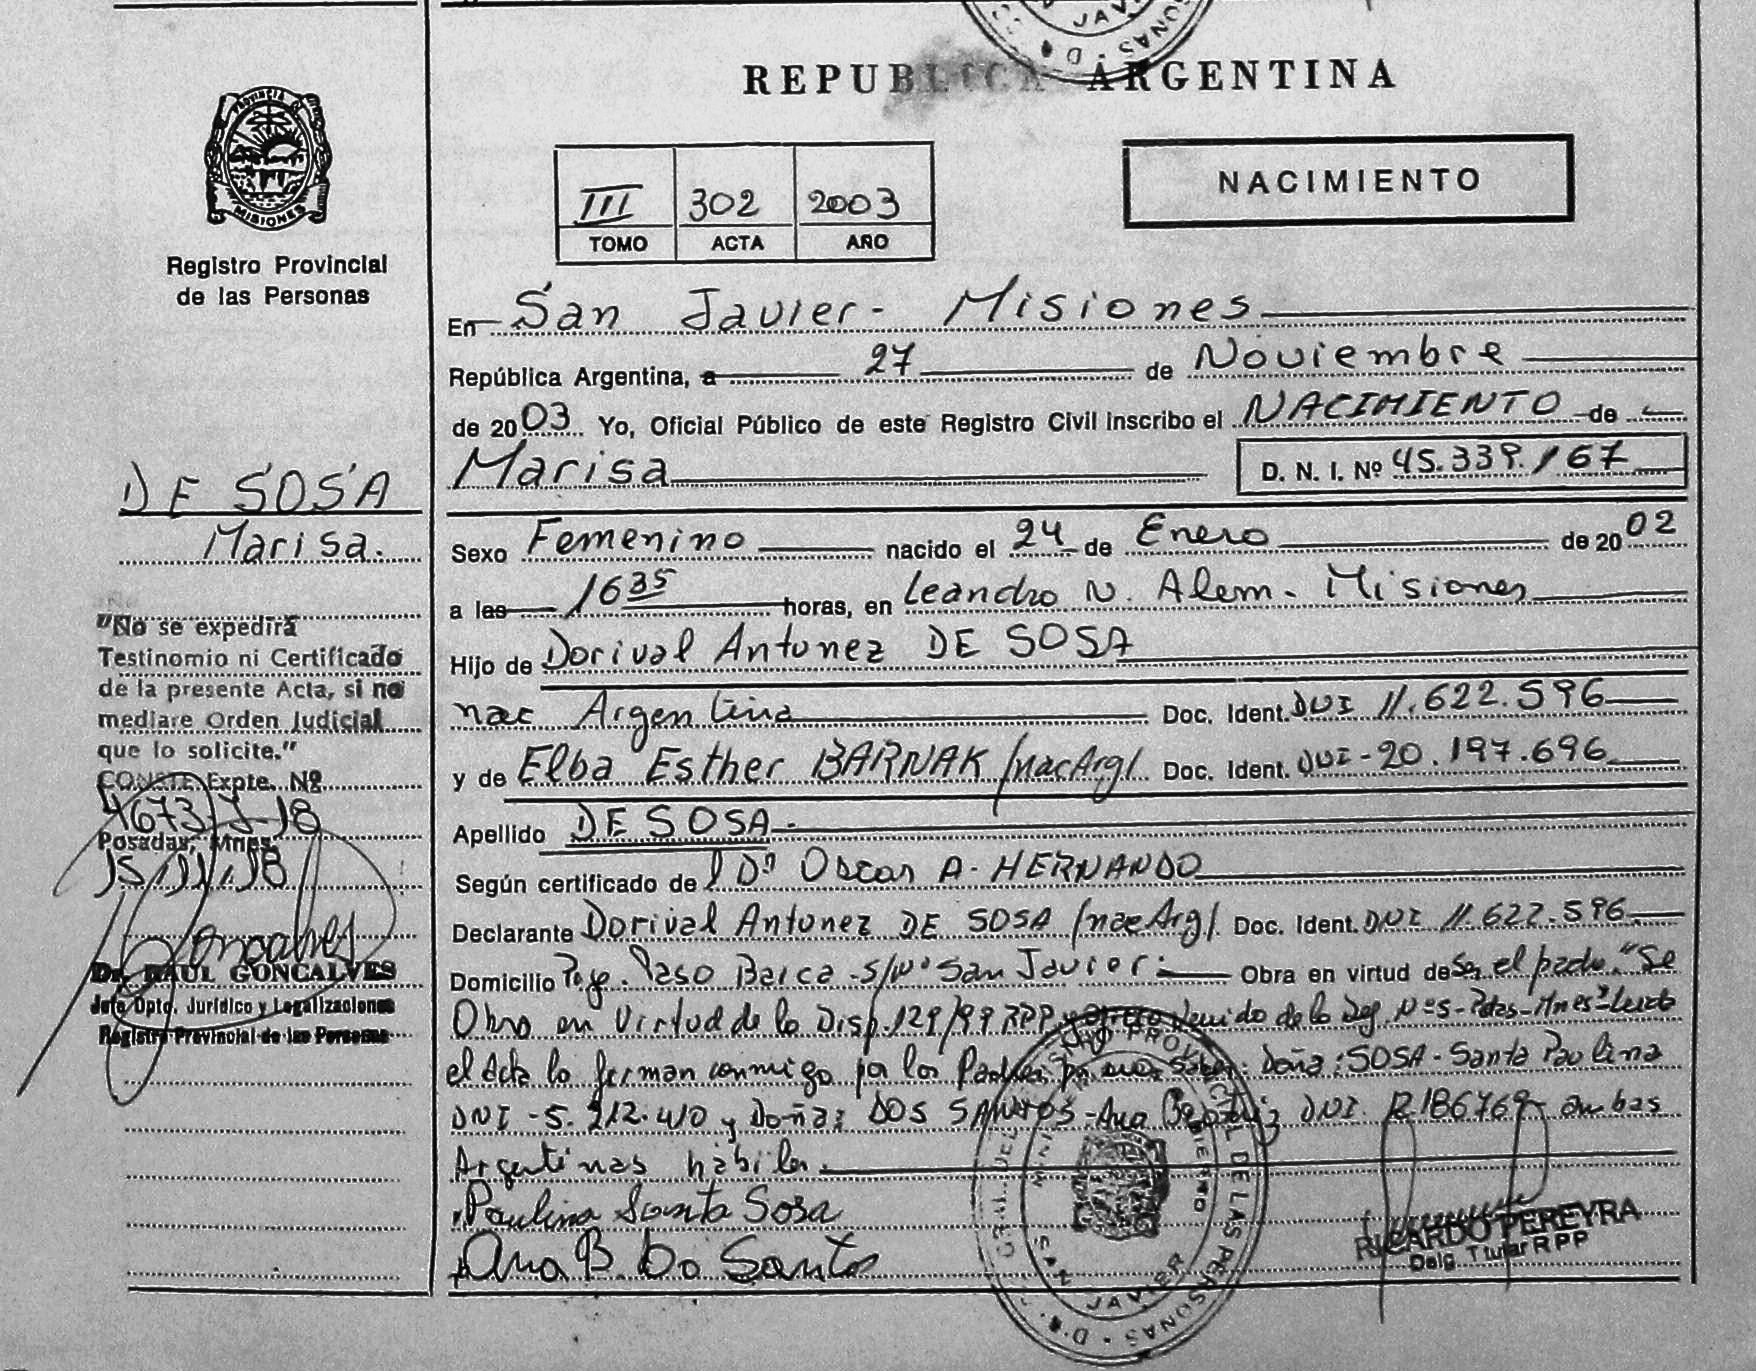 REPUBLICA ARGENTINA
PROVINCIA DE
MISIONES
Registro Provincial
de las Personas
NACIMIENTO
III 302 2003
TOMO ACTA AÑO
En San Javier - Misiones
República Argentina, a 27 de Noviembre
de 2003 Yo, Oficial Público de este Registro Civil inscribo el NACIMIENTO de
Marisa D. N. I. Nº 45.339.167
DE SOSA
Marisa.
Sexo Femenino nacido el 24 de Enero de 2002
a las 16 35 horas, en Leandro N. Alem - Misiones
Hijo de Dorival Antunez DE SOSA
nac Argentina Doc. Ident. DNI 11.622.596
y de Elba Esther BARNAK /nac Arg/ Doc. Ident. DNI - 20.197.696
Apellido DE SOSA.-
Según certificado del Dr Oscar A. HERNANDO
Declarante Dorival Antunez DE SOSA /nac Arg/. Doc. Ident. DNI 11.622.596
Domicilio Pje. Paso Barca - S/Nº San Javier.- Obra en virtud de Ser el padre. "Se
Obra en Virtud de la Disp. 129/99 RPP y de la
el Acta la firman conmigo por los Doña: SOSA - Santa Paulina
DNI - 5.212.410 y Doña: DOS SANTOS - Ana Beatriz DNI ambas
Argentinas hábiles.
Paulina Santa Sosa
Ana B. Do Santos
"No se expedirá
Testinomio ni Certificado
de la presente Acta, si no
mediare Orden Judicial
que lo solicite."
CONSTE Expte. Nº
4673/J-18
Posadas, Mnes.
15/11/18
Goncalves
Dr. RAUL GONCALVES
Jefe Dpto. Jurídico y Legalizaciones
Registro Provincial de las Personas
RICARDO PEREYRA
Delg. Titular RPP
PROVINCIAL DE LAS PERSONAS
SAN JAVIER